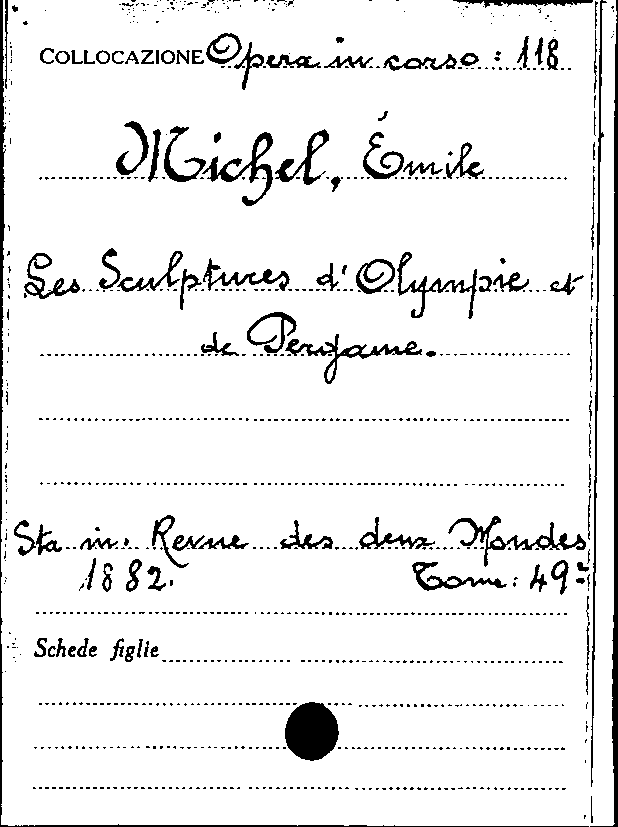 COLLOCAZIONE Opera in corso: 118
Michel, Émile
Les Sculptures d'Olympie et
de Pergame.
Sta in. Revue des deux Mondes
1882. Tome: 49º
Schede figlie